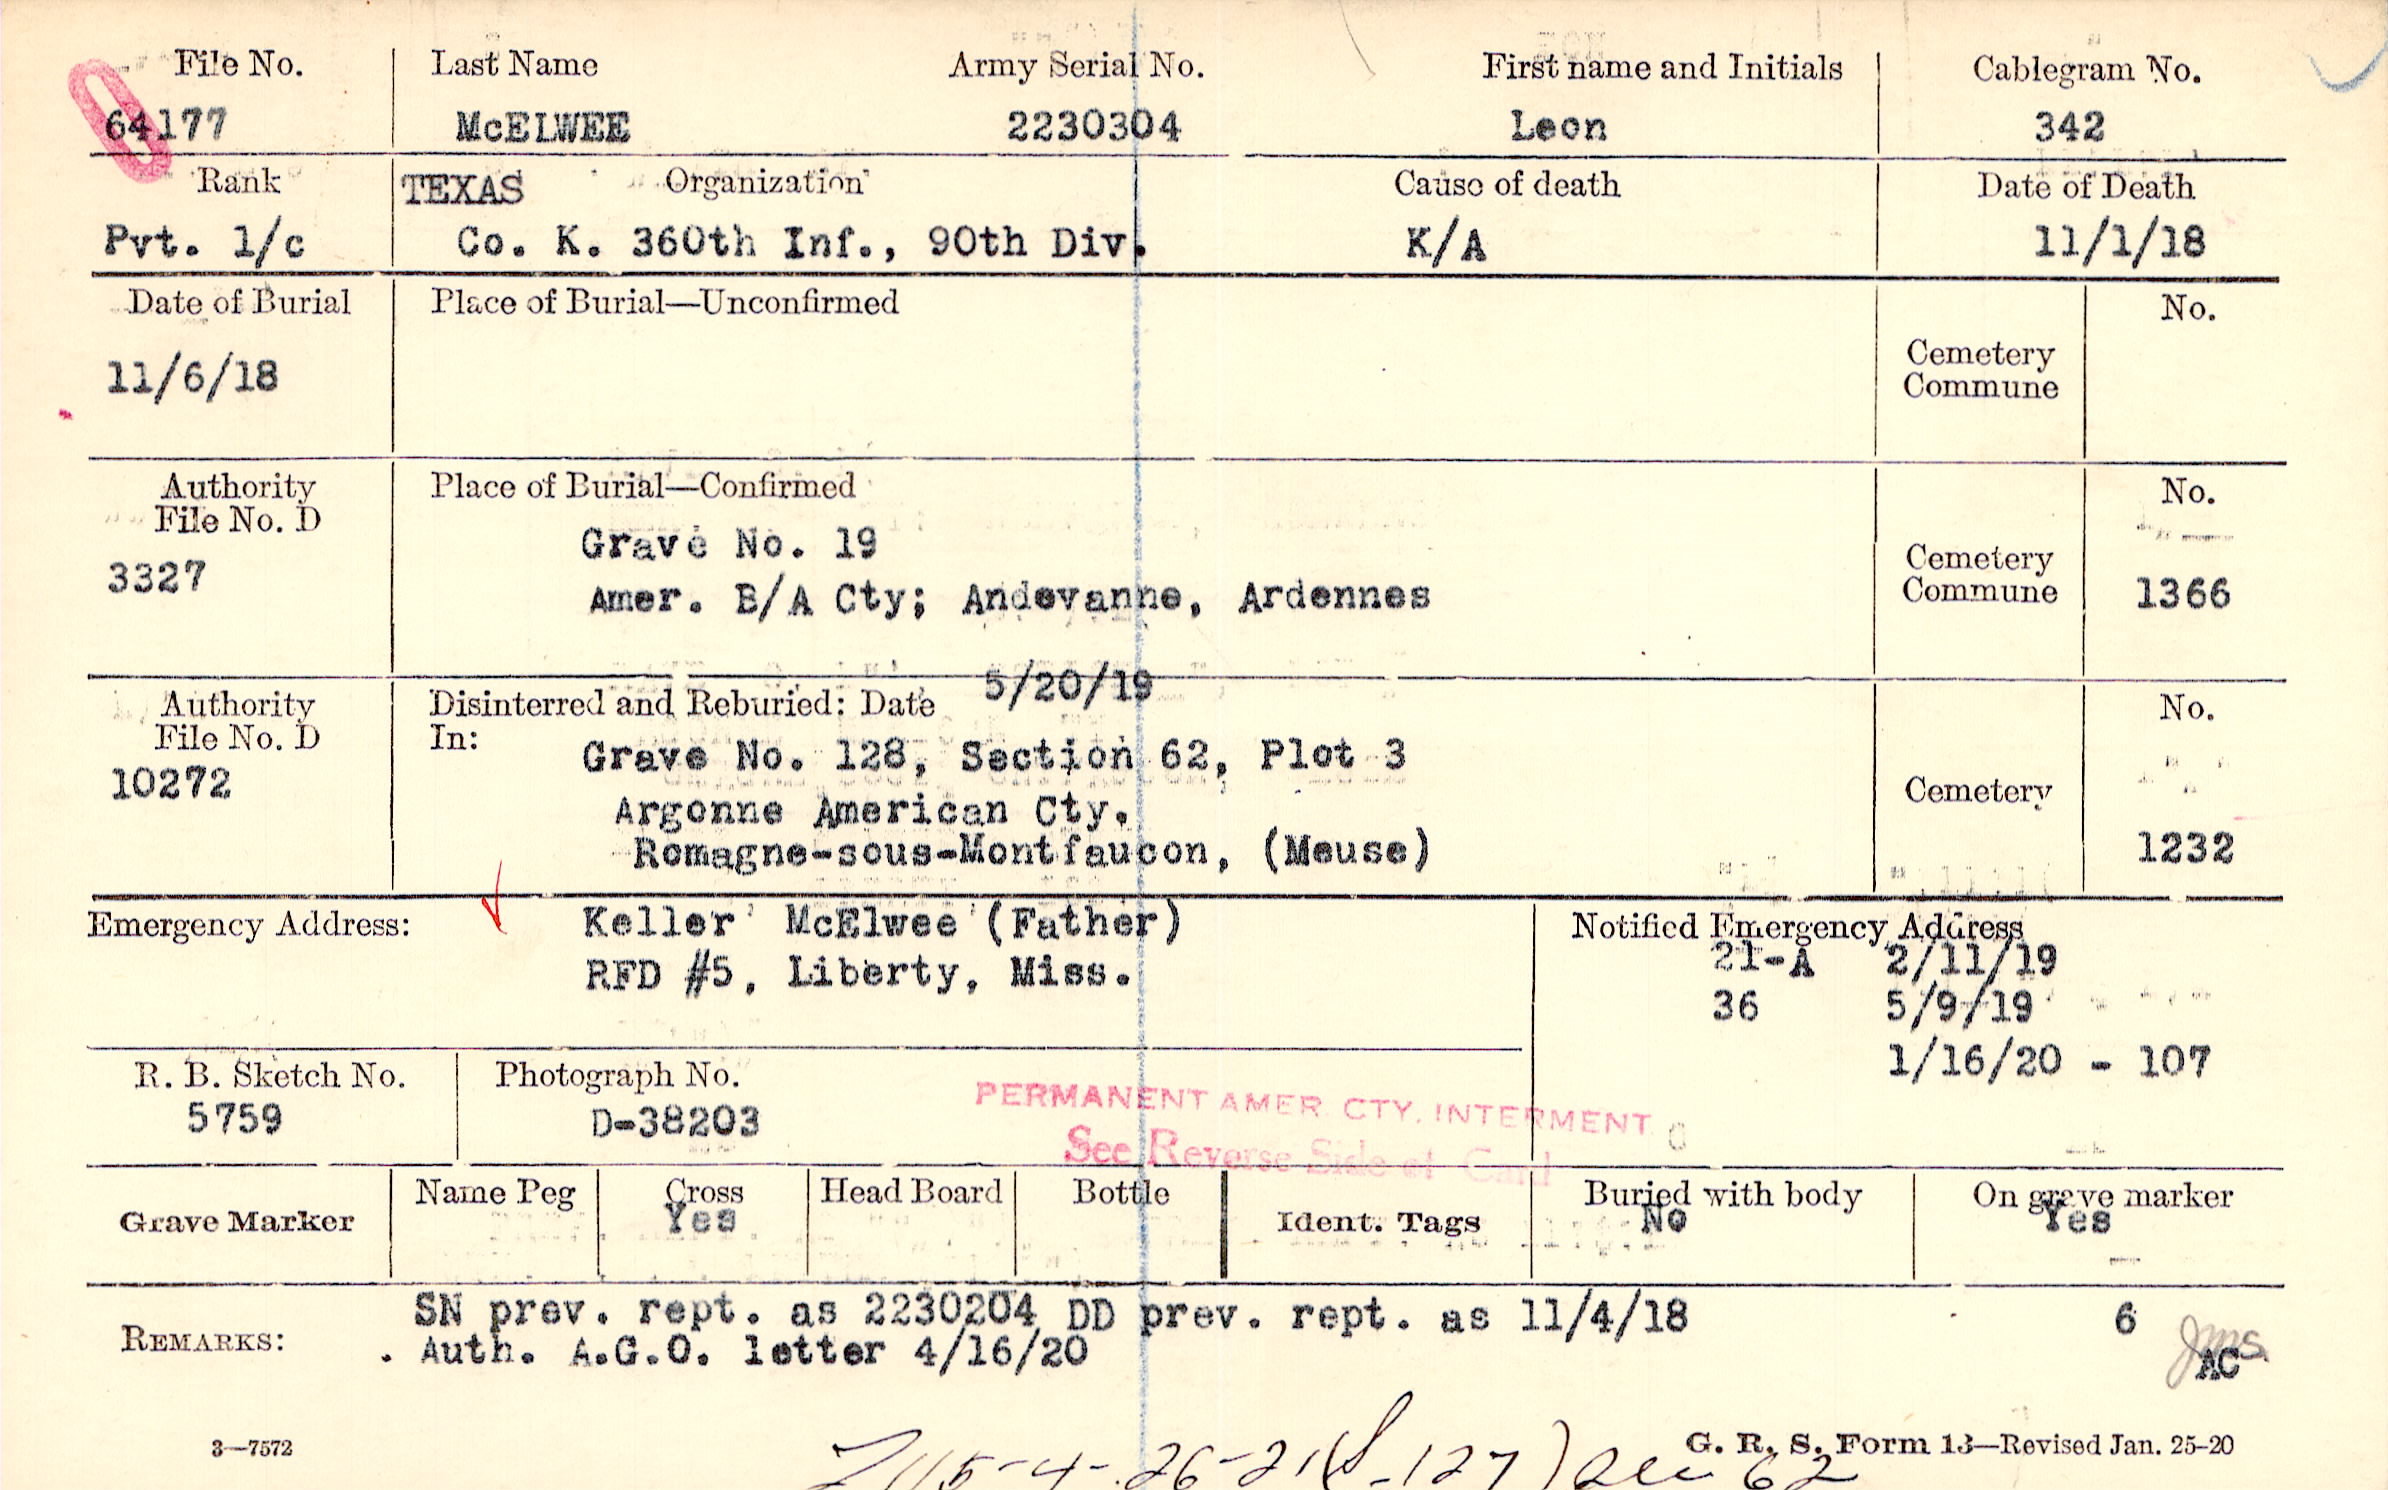 File No. Last Name Army Serial No. First name and Initials Cablegram No.
64177 McELWEE 2230304 Leon 342
Rank TEXAS Organization Cause of death Date of Death
Pvt. 1/c Co. K. 360th Inf., 90th Div. K/A 11/1/18
Date of Burial Place of Burial—Unconfirmed No.
11/6/18 Cemetery
Commune
Authority Place of Burial—Confirmed No.
File No. D
Grave No. 19
3327 Cemetery
Amer. B/A Cty; Andevanne, Ardennes Commune 1366
Authority Disinterred and Reburied: Date 5/20/19 No.
File No. D In:
10272 Grave No. 128, Section 62, Plot 3
Argonne American Cty. Cemetery
Romagne-sous-Montfaucon, (Meuse) 1232
Emergency Address: Keller McElwee (Father) Notified Emergency Address
RFD #5, Liberty, Miss. 21-A 2/11/19
36 5/9/19
1/16/20 - 107
R. B. Sketch No. Photograph No.
5759 D-38203
PERMANENT AMER. CTY. INTERMENT
See Reverse Side of Card
Grave Marker Name Peg Cross Head Board Bottle Ident. Tags Buried with body On grave marker
Yes No Yes
REMARKS: SN prev. rept. as 2230204 DD prev. rept. as 11/4/18 6
. Auth. A.G.O. letter 4/16/20 AC
3—7572 G. R. S. Form 13—Revised Jan. 25-20
-4-26-21 -127) 62